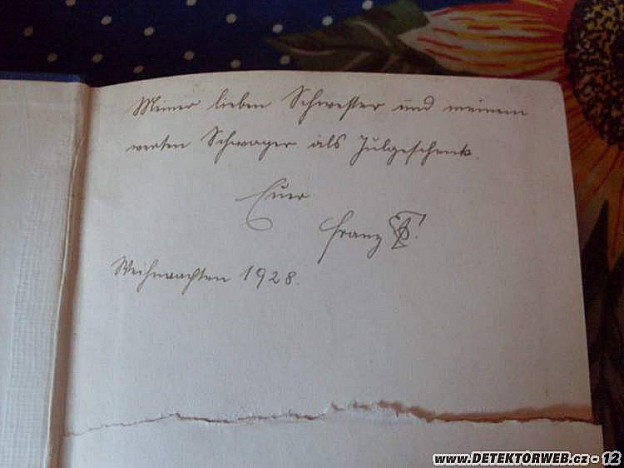 Meiner lieben Schwester und meinem
werten Schwager als Julgeschenk.
Euer
Franz
Weihnachten 1928.
www.DETEKTORWEB.cz - 12